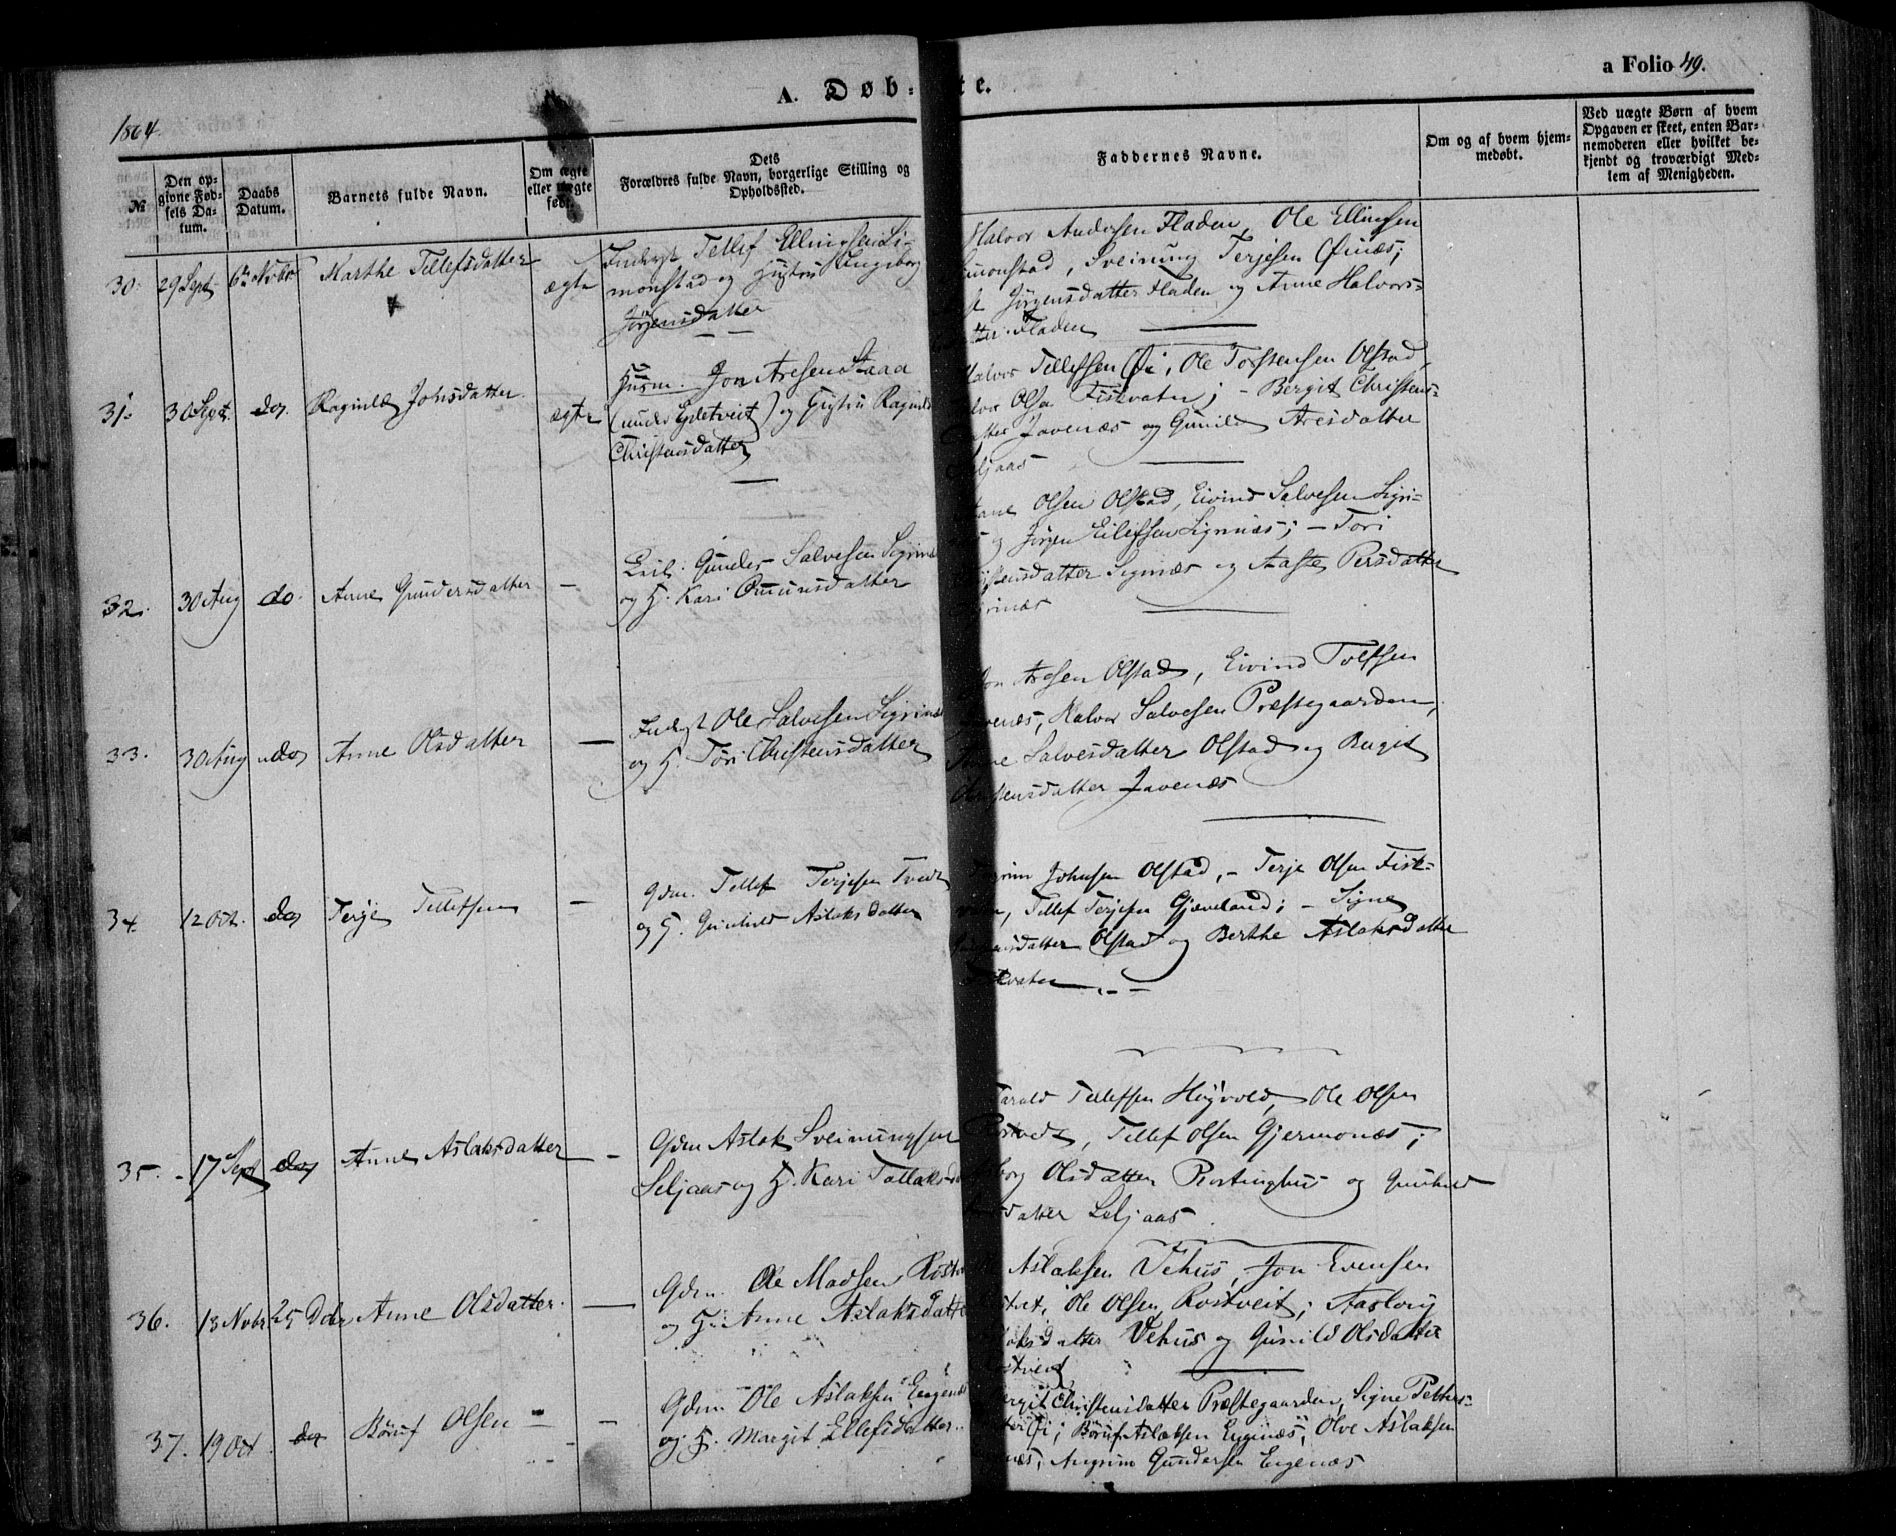 1864.
A. Døb-te.
a Folio 49.
No
Den opgivne Fødsels Datum.
Daabs Datum.
Barnets fulde Navn.
Om ægte eller uægte født.
Dets Forældres fulde Navn, borgerlige Stilling og Opholdssted.
Faddernes Navne.
Om og af hvem hjemmedøbt.
Ved uægte Børn af hvem Opgaven er skeet, enten Barnemoderen eller hvilket bekjendt og troværdigt Medlem af Menigheden.
30. 29 Sept. Marthe Tellefsdatter ægte
Tellef Ellingsen Si-
monstad og Hustru Ingeborg
Jørgensdatter
Halvor Andersen Fladen, Ole Ellingsen
monstad, Sveinung Terjesen Øinæs;
Jørgensdatter Fladen og Anne Halvors-
tter Fladen
31. 30 Sept. do. Ragnild Johsdatter ægte
Husm. Jon Aresen Staaa
(under Espetveit) og Hustru Ragnild
Christensdatter
alvor Tellefsen Øi, Ole Torstensen Olstad,
Olsen Fiskvatn; - Bergit Christens-
tter Javenæs og Gunild Aresdatter
ljaas
32. 30 Aug do. Anne Gundersdatter —
Gunder Salvesen Signæs
og H. Kari Omunsdatter
Olsen Olstad, Eivind Salvesen Sigri-
og Jørgen Eilefsen Signæs; - Tori
istensdatter Signæs og Aaste Persdatter
rinæs
33. 30 Aug do Anne Olsdatter —
Indrst Ole Salvesen Sigrinæs
og H. Tori Christensdatter
Jon Aresen Olstad, Eivind Tolfsen
venæs, Halvor Salvesen Præstegaarden,
ne Salvesdatter Olstad og Bergit
istensdatter Javenæs
34. 12 Oct. do Terje Tellefsen —
Gdm. Tellef Terjesen Tvedt
og H. Gunhild Aslaksdatter
Johnsen Olstad, - Terje Olsen Fisk-
vatn, Tellef Terjesen Gjæveland; - Signe
datter Olstad og Berthe Aslaksdatter
kvatn
35. 17 Sept do Anne Aslaksdatter —
Gdm Aslak Sveinungsen
Seljaas og H. Kari Tallaksd
arald Tellefsen Høgvold, Ole Olsen
stvedt, Tellef Olsen Gjermonæs;
borg Olsdatter Rostinghus og Gunhild
datter Seljaas
36. 13 Novbr 25 Dcbr Anne Olsdatter. —
Gdm. Ole Madsen Rostv
og H. Anne Aslaksdatte
Aslaksen Vehus, Jon Evensen
Ole Olsen Rostveit; Aasborg
laksdatter Vehus og Gunild Olsdatter
stveit
37. 19 Oct do Børuf Olsen —
Gdm. Ole Aslaksen Engenæs
og H. Margit Ellefsdatter
ergit Christensdatter Præstegaarden, Signe Petters-
Øi; Børuf Aslaksen Engenæs, Olve Aslaksen
næs, Angrim Gundersen Engenæs